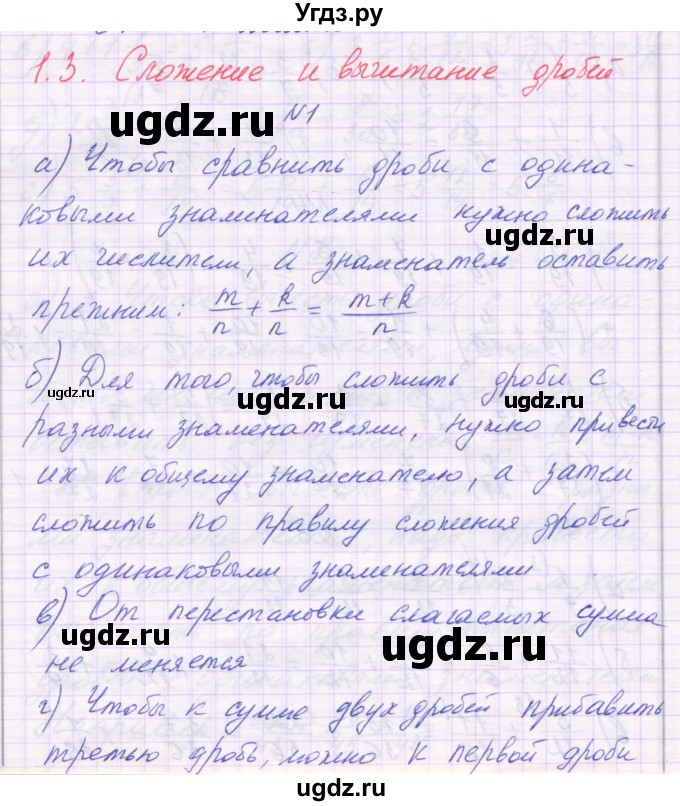 Угдз.ру
1.3. Сложение и вычитание дробей
ugdz.ru
№1
а) Чтобы сравнить дроби с одина-
ковыми знаминателями нужно сложить
ugdz.ru
их числители, а знаменатель оставить
прежним: m/n + k/n = m+k/n
ugdz.ru
б) Для того, чтобы сложить дроби с
ugdz.ru ugdz.ru ugdz.ru
разными знаменателями, нужно привести
их к общему знаменателю, а затем
сложить по правилу сложения дробей
с одинаковыми знаменателями
в) От перестановки слагаемых сумма
ugdz.ru ugdz.ru
не меняется
г) Чтобы к сумме двух дробей прибавить
третью дробь, можно к первой дроби
ugdz.ru ugdz.ru